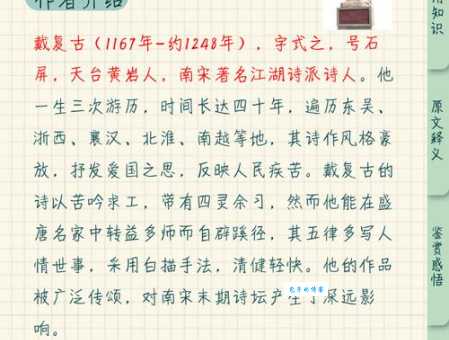 作者介绍
戴复古（1167年-约1248年），字式之，号石
屏，天台黄岩人，南宋著名江湖诗派诗人。他
一生三次游历，时间长达四十年，遍历东吴、
浙西、襄汉、北淮、南越等地，其诗作风格豪
放，抒发爱国之思，反映人民疾苦。戴复古的
诗以苦吟求工，带有四灵余习，然而他能在盛
唐名家中转益多师而自辟蹊径，其五律多写人
情世事，采用白描手法，清健轻快。他的作品
被广泛传颂，对南宋末期诗坛产生了深远影
响。
知识
原文释义
鉴赏感悟